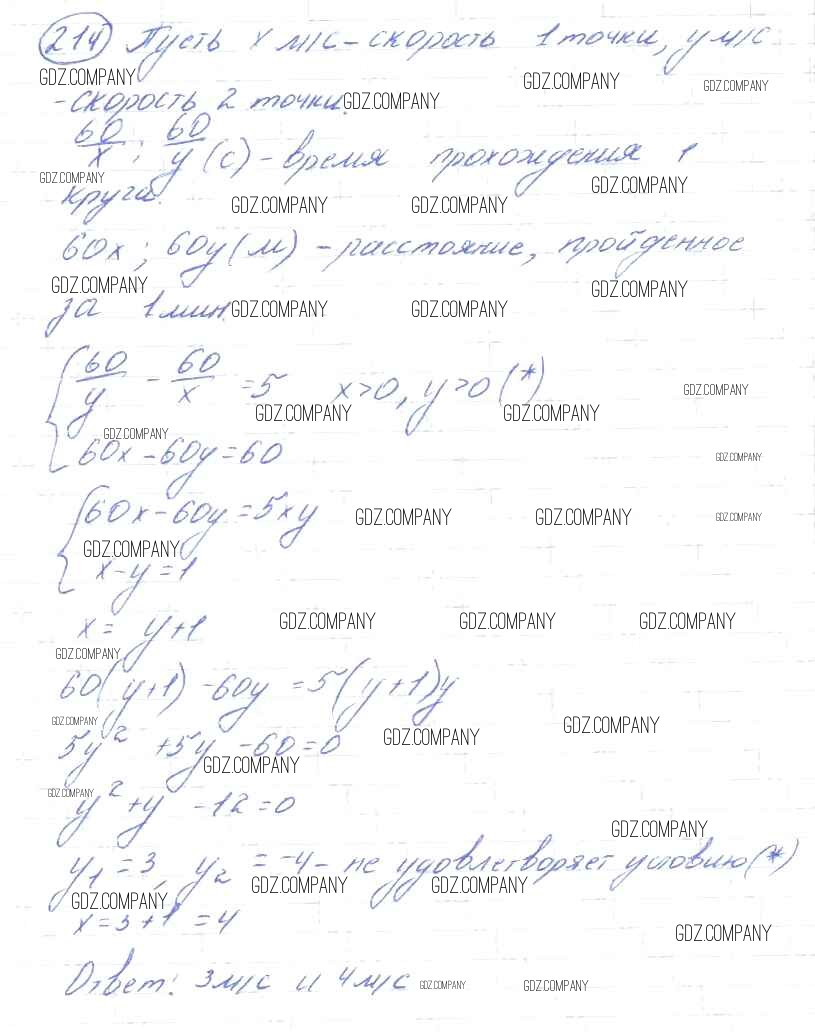 214 Пусть x м/с - скорость 1 точки, y м/с
GDZ.COMPANY GDZ.COMPANY GDZ.COMPANY
- скорость 2 точки. GDZ.COMPANY
60/x ; 60/y (с) - время прохождения 1
GDZ.COMPANY GDZ.COMPANY
круга.
GDZ.COMPANY GDZ.COMPANY
60x ; 60y (м) - расстояние, пройденное
GDZ.COMPANY GDZ.COMPANY
за 1 мин. GDZ.COMPANY GDZ.COMPANY
60/y - 60/x = 5 x>0, y>0 (*)
GDZ.COMPANY
GDZ.COMPANY GDZ.COMPANY
GDZ.COMPANY
60x - 60y = 60
GDZ.COMPANY
60x - 60y = 5xy GDZ.COMPANY GDZ.COMPANY GDZ.COMPANY
GDZ.COMPANY
x - y = 1
x = y+1 GDZ.COMPANY GDZ.COMPANY GDZ.COMPANY
GDZ.COMPANY
60(y+1) - 60y = 5(y+1)y
GDZ.COMPANY GDZ.COMPANY GDZ.COMPANY
5y² + 5y - 60 = 0
GDZ.COMPANY
GDZ.COMPANY
y² + y - 12 = 0
GDZ.COMPANY
y₁ = 3, y₂ = -4 - не удовлетворяет условию (*)
GDZ.COMPANY GDZ.COMPANY GDZ.COMPANY
x = 3+1 = 4
GDZ.COMPANY
Ответ: 3 м/с и 4 м/с GDZ.COMPANY GDZ.COMPANY